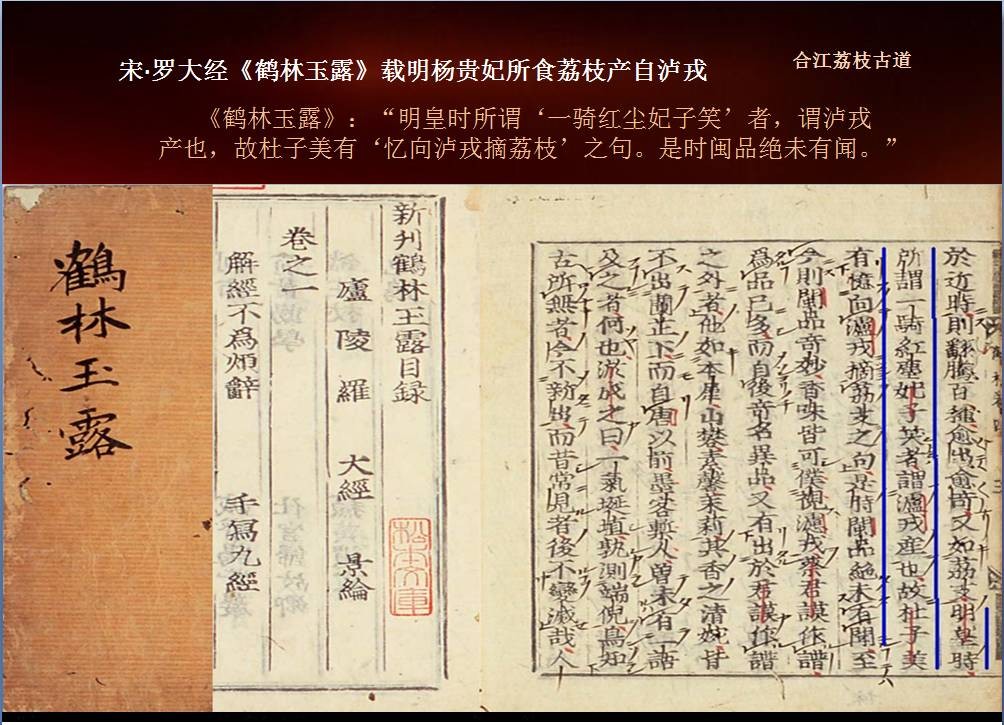 宋·罗大经《鹤林玉露》载明杨贵妃所食荔枝产自泸戎
合江荔枝古道
《鹤林玉露》：“明皇时所谓‘一骑红尘妃子笑’者，谓泸戎
产也，故杜子美有‘忆向泸戎摘荔枝’之句。是时闽品绝未有闻。”
鶴林玉露
新刋鶴林玉露目録
廬陵羅 大經 景綸
卷之一
解經不爲煩辭 手寫九經
於近時則翻騰百種愈出愈奇又如荔支明皇時
所謂一騎紅塵妃子笑者謂瀘戎産也故杜子美
有憶向瀘戎摘荔支之句是時閩品絶未有聞至
今則閩品奇妙香味皆可僕視瀘戎蔡君謨作譜
爲品已多而自後奇名異品又有出於君謨作譜
之外者他如木犀山礬素馨茉莉其香之清婉皆
不出蘭芷下而自唐以前墨客槧人曾未有一語
及之者何也游成之曰一氣埏埴孰測端倪烏知
古所無者今不新出而昔常見者後不變滅哉人